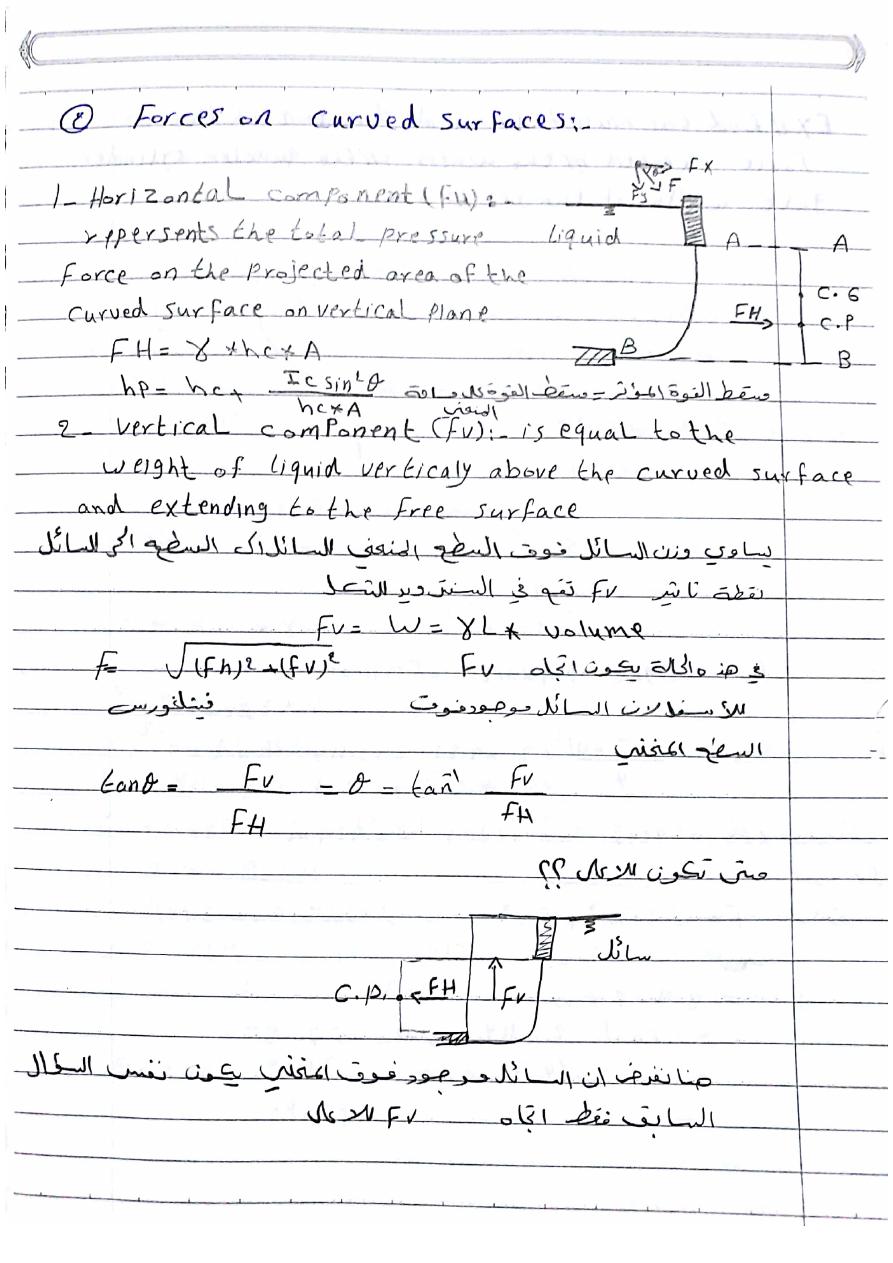 ② Forces on curved surfaces:-
Fx
F
Fy
1- Horizontal component (FH):-
rppersents the total pressure
liquid
A
A
Force on the Projected area of the
C.G
curved surface on vertical plane
FH
C.P
FH = γ * hc * A
B
B
hp = hc + Ic sin²θ / hc*A
مسقط القوة المؤثر = مسقط القوة على
المنحني
2- vertical component (Fv):- is equal to the
weight of liquid verticaly above the curved surface
and extending to the free surface
يساوي وزن السائل فوق السطح المنحني للسائل الى السطح الحر للسائل
نقطة تاثير Fv تقع في السنتر
Fv = W = γL * volume
في هذه الحالة يكون اتجاه Fv
F = √(Fh)² + (Fv)²
للأسفل لان السائل موجود فوق
فيثاغورس
السطح المنحني
tanθ = Fv / FH = θ = tan⁻¹ Fv / FH
متى تكون للاعلى ؟؟
سائل
C.P.
FH
Fv
هنا نفرض ان السائل موجود فوق المنحني يكون نفس السؤال
السابق فقط اتجاه Fv للاعلى